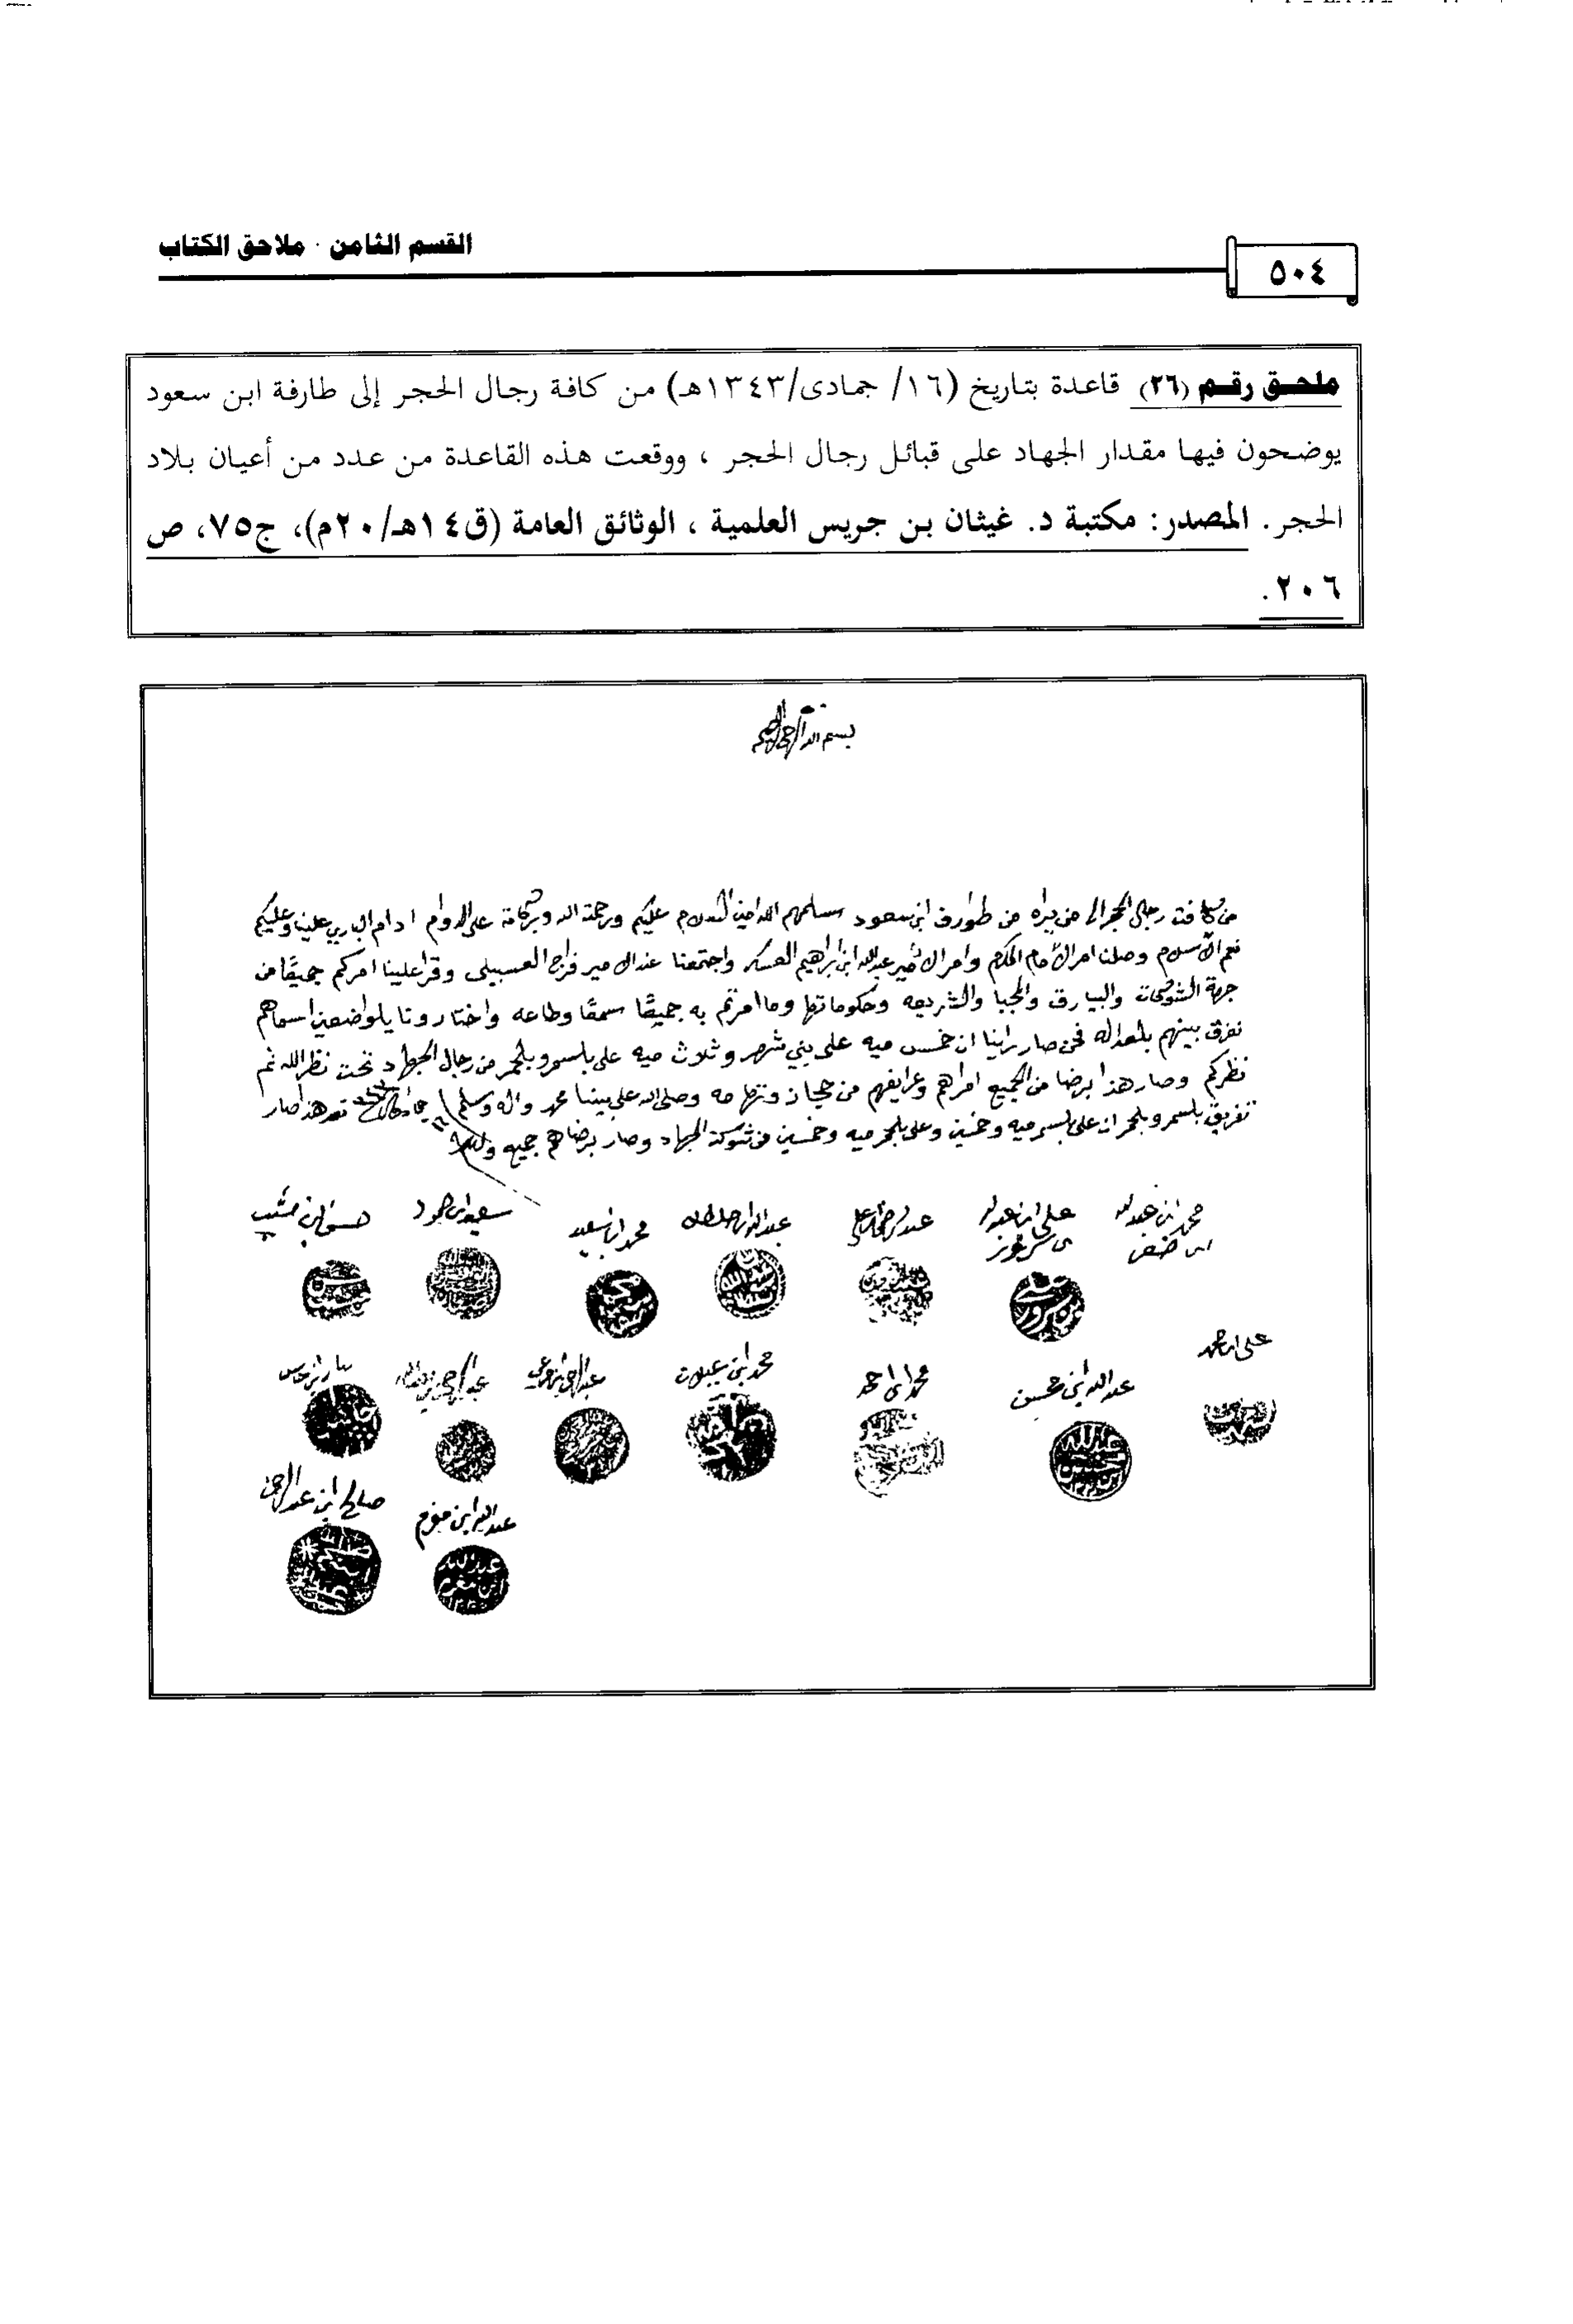 القسم الثامن - ملاحق الكتاب
٥٠٤
ملحق رقم (٢٦) قاعدة بتاريخ (١٦/ جمادى/١٣٤٣هـ) من كافة رجال الحجر إلى طارفة ابن سعود
يوضحون فيها مقدار الجهاد على قبائل رجال الحجر ، ووقعت هذه القاعدة من عدد من أعيان بلاد
الحجر. المصدر: مكتبة د. غيثان بن جريس العلمية ، الوثائق العامة (ق١٤هـ/٢٠م)، ج٧٥، ص
٢٠٦.
بسم الله الرحمن الرحيم
من كافت رجال الحجر الى من يراه من طوارف ابن سعود سلمهم الله امين السلام عليكم ورحمة الله وبركاته على الدوام ادام الباري علينا وعليكم
نعم الاسلام وصلنا امر الامام المكرم وامر الامير عبدالله ابن ابراهيم العسكر واجتمعنا عند الامير فراج العسبلي وقرا علينا امركم جميعًا من
جهة الشوكات والبيارق والجبا والشريعه وحكوماتها وما امرتم به جميعًا سمعًا وطاعه واختارونا يلواضعين اسماهم
نفرق بينهم بلعداله فمن صار راينا ان خمس ميه على بني شهر وثلاث ميه على بلسمر وبلحمر من رجال الجهاد تحت نظر الله ثم
نظركم وصار هذا برضا من الجميع امراهم وعرايفهم من حجاز وتهامه وصلى الله على نبينا محمد واله وسلم ١٦ جماد ١٣٤٣ هذا صار
تفريق بلسمر وبلحمر ان على بلسمر ميه وخمسين وعلى بلحمر ميه وخمسين من شوكة الجهاد وصار برضاهم جميع
محمد ابن عبدالله
علي ابن عبدالله
محمد ابن سعيد
سعيد ابن حمود
علي ابن محمد
عبدالله ابن حسين
محمد ابن احمد
محمد ابن
عبدالله ابن مفرح
صالح ابن عبدالرحمن